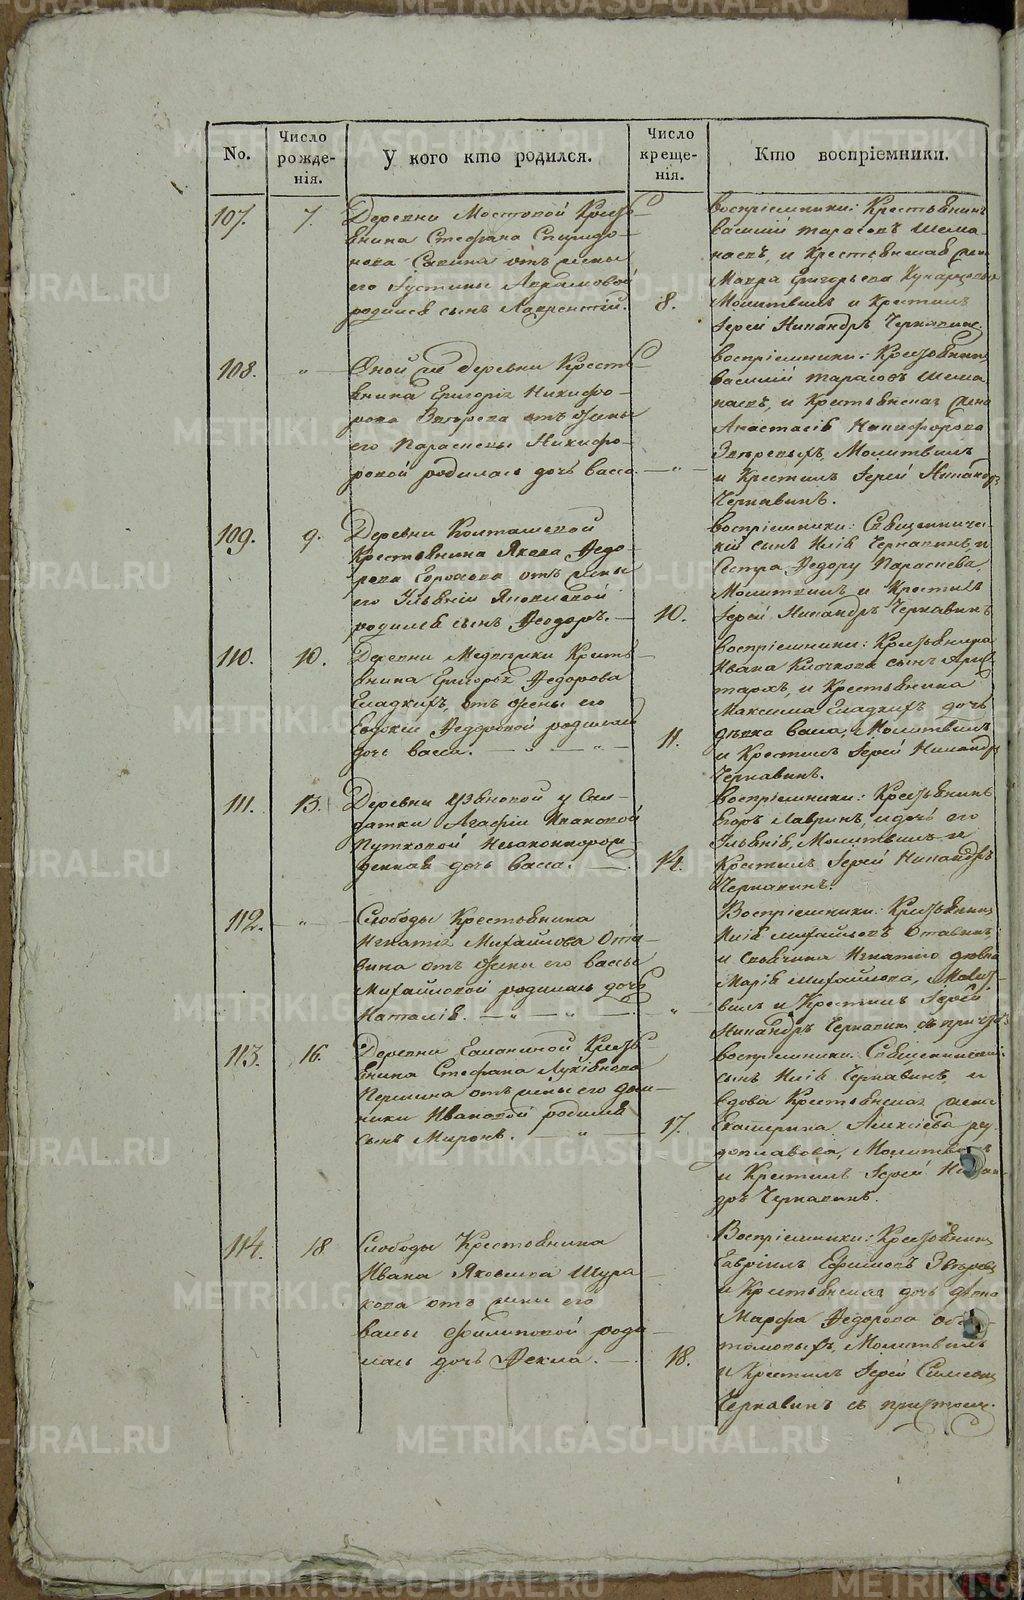 METRIKI.GASO-URAL.RU
No.
Число рожде- нія.
У кого кто родился.
Число креще- нія.
Кто воспріемники.
107.
7.
Деревни Мостовой Кресть-
янина Стефана Спиридо-
нова Савина отъ жены
его Іустины Аврамовой
родился сынъ Лаврентій.
8.
воспріемники: Крестьянинъ
василій тарасовъ Шема-
наевъ, и Крестьянская жена
Мавра Григорьева
Молитвилъ и Крестилъ
Іерей Никандръ Чернавинъ.
108.
"
Оной же деревни Кресть-
янина Григорія Никифо-
рова Звѣрева отъ жены
его Парасковьи Никифо-
ровой родилась дочь васса
"
воспріемники: Крестьянинъ
василій тарасовъ Шема
наевъ, и Крестьянская жена
Анастасія Никифорова
Звѣревыхъ, Молитвилъ
и Крестилъ Іерей Никандръ
Чернавинъ.
109.
9.
Деревни
Крестьянина Якова Ѳедо-
рова Горохова отъ жены
его Іульяніи Яковлевой
родился сынъ Ѳеодоръ.
10.
воспріемники: Священниче-
скій сынъ Илія Чернавинъ, и
Сестра Ѳедору Параскева,
Молитвилъ и Крестилъ
Іерей Никандръ Чернавинъ
110.
10.
Деревни Медвѣдки Кресть-
янина Григорья Ѳедорова
Гладкихъ, отъ жены его
Ѳедоровой родилась
дочь васса.
11.
воспріемники: Крестьянина
Ивана Клочкова сынъ Арис-
тархъ, и Крестьянина
Максима Гладкихъ дочь
дѣвка васса, Молитвилъ
и Крестилъ Іерей Никандръ
Чернавинъ.
111.
13.
Деревни Узяновой у Сол-
датки Агафіи Ивановой
Путковой Незаконнорож
денная дочь васса.
14.
воспріемники: Крестьянинъ
Егоръ Лавринъ, и дочь его
Іульянія, Молитвилъ и
Крестилъ Іерей Никандръ
Чернавинъ.
112.
"
Слободы Крестьянина
Игнатія Михайлова
отъ жены его вассы
Михайловой родилась дочь
Наталія.
"
Воспріемники: Крестьянинъ
Илія михайловъ
и Игнатію
Марія михайлова, Молит-
вилъ и Крестилъ Іерей
Никандръ Чернавинъ съ причтомъ
113.
16.
Деревни Кресть-
янина Стефана Лукіянова
Першина отъ жены его Дом-
ники Ивановой родился
сынъ Миронъ.
17.
воспріемники: Священническій
сынъ Илія Чернавинъ, и
вдова Крестьянская жена
Екатерина
Молитвилъ
и Крестилъ Іерей Никан-
дръ Чернавинъ.
114.
18
Слободы Крестьянина
Ивана Яковлева Шура
кова отъ жены его
вассы Филиповой роди-
лась дочь Ѳекла.
18.
Воспріемники: Крестьянинъ
Гавріилъ Ефимовъ Звѣревъ
и Крестьянская дочь
Марѳа Ѳедорова
Молитвилъ
и Крестилъ Іерей Симеонъ
Чернавинъ съ причтомъ.